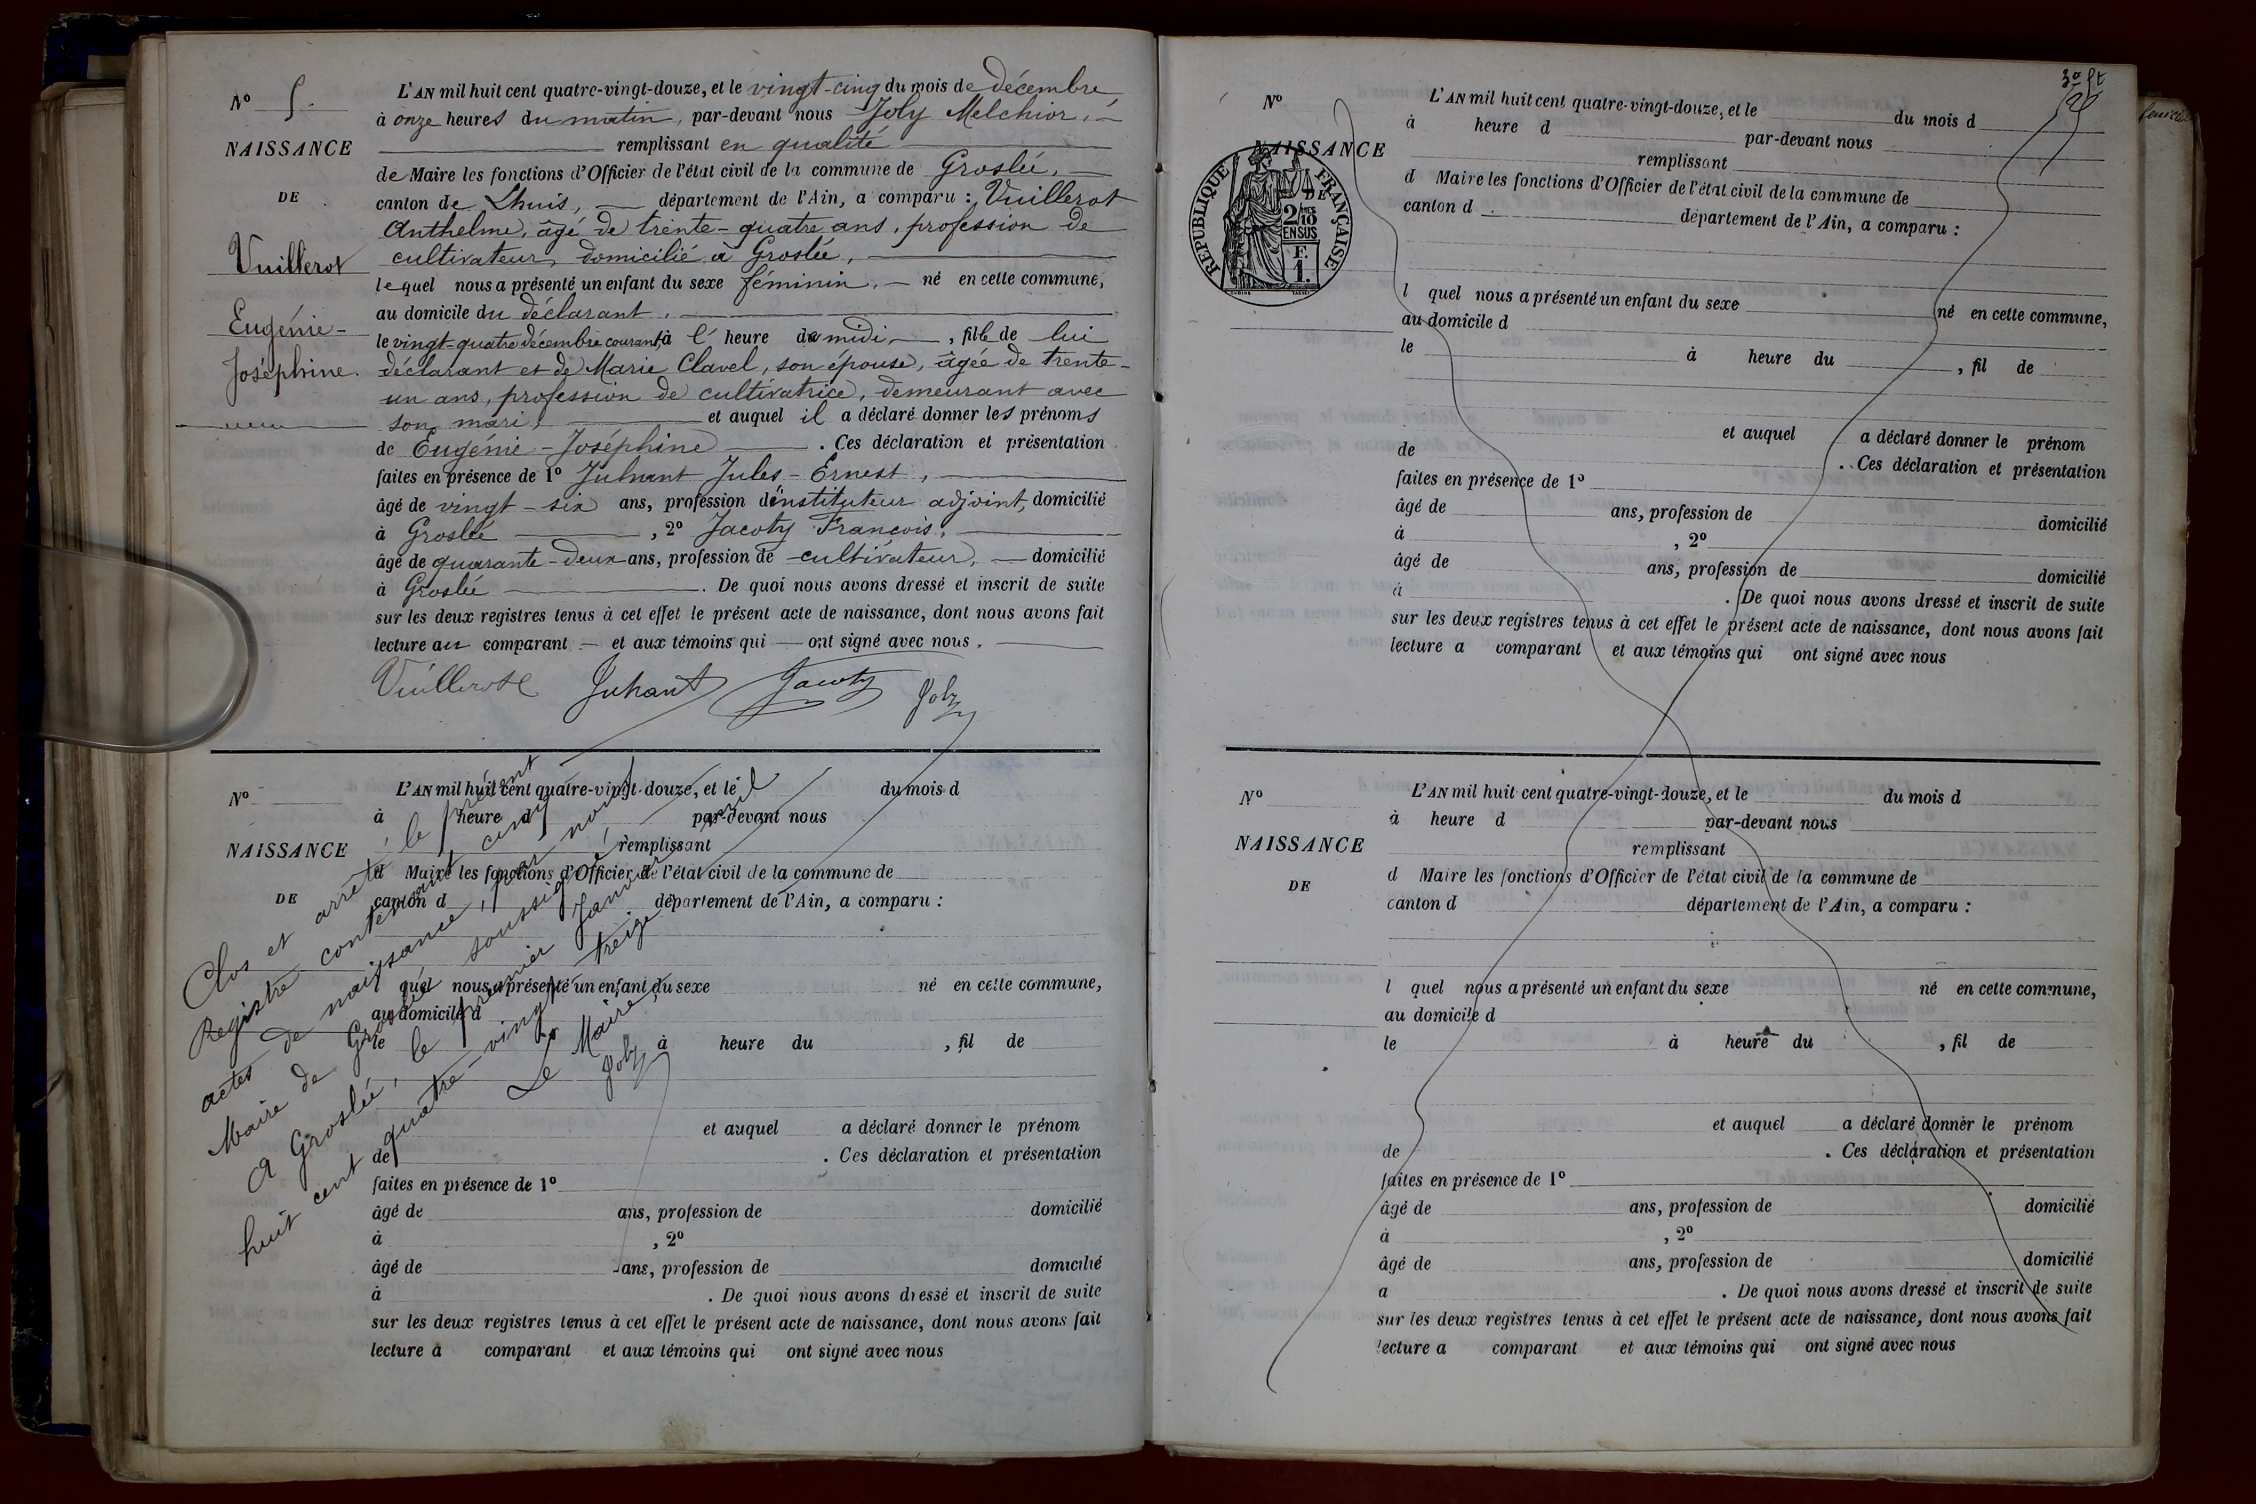 N° 5.
NAISSANCE
DE
Vuillerot
Eugénie-
Joséphine.
L'AN mil huit cent quatre-vingt-douze, et le vingt-cinq du mois de décembre
à onze heures du matin, par-devant nous Joly Melchior,
remplissant en qualité
de Maire les fonctions d'Officier de l'état civil de la commune de Groslée,
canton de Lhuis, département de l'Ain, a comparu : Vuillerot
Anthelme, âgé de trente-quatre ans, profession de
cultivateur, domicilié à Groslée,
lequel nous a présenté un enfant du sexe féminin, né en cette commune,
au domicile du déclarant,
le vingt-quatre décembre courant, à l' heure de midi, fille de lui
déclarant et de Marie Clavel, son épouse, âgée de trente-
un ans, profession de cultivatrice, demeurant avec
son mari, et auquel il a déclaré donner les prénoms
de Eugénie-Joséphine. Ces déclaration et présentation
faites en présence de 1° Juhant Jules-Ernest,
âgé de vingt-six ans, profession d'instituteur adjoint, domicilié
à Groslée, 2° Jacoty François,
âgé de quarante-deux ans, profession de cultivateur, domicilié
à Groslée. De quoi nous avons dressé et inscrit de suite
sur les deux registres tenus à cet effet le présent acte de naissance, dont nous avons fait
lecture au comparant et aux témoins qui ont signé avec nous.
Vuillerot Juhant Jacoty Joly
N°
NAISSANCE
DE
L'AN mil huit cent quatre-vingt-douze, et le du mois d
à heure d par-devant nous
remplissant
d Maire les fonctions d'Officier de l'état civil de la commune de
canton d département de l'Ain, a comparu :
l quel nous a présenté un enfant du sexe né en cette commune,
au domicile d
le à heure du , fil de
et auquel a déclaré donner le prénom
de . Ces déclaration et présentation
faites en présence de 1°
âgé de ans, profession de domicilié
à , 2°
âgé de ans, profession de domicilié
à . De quoi nous avons dressé et inscrit de suite
sur les deux registres tenus à cet effet le présent acte de naissance, dont nous avons fait
lecture à comparant et aux témoins qui ont signé avec nous
Clos et arrêté le présent
Registre contenant cinq
actes de naissance, par nous
Maire de Groslée soussigné
A Groslée, le premier Janvier mil
huit cent quatre-vingt treize
Le Maire,
Joly
N°
NAISSANCE
DE
RÉPUBLIQUE FRANÇAISE
2/10
EN SUS
F.
1.
L'AN mil huit cent quatre-vingt-douze, et le du mois d
à heure d par-devant nous
remplissant
d Maire les fonctions d'Officier de l'état civil de la commune de
canton d département de l'Ain, a comparu :
l quel nous a présenté un enfant du sexe né en cette commune,
au domicile d
le à heure du , fil de
et auquel a déclaré donner le prénom
de . Ces déclaration et présentation
faites en présence de 1°
âgé de ans, profession de domicilié
à , 2°
âgé de ans, profession de domicilié
à . De quoi nous avons dressé et inscrit de suite
sur les deux registres tenus à cet effet le présent acte de naissance, dont nous avons fait
lecture a comparant et aux témoins qui ont signé avec nous
N°
NAISSANCE
DE
L'AN mil huit cent quatre-vingt-douze, et le du mois d
à heure d par-devant nous
remplissant
d Maire les fonctions d'Officier de l'état civil de la commune de
canton d département de l'Ain, a comparu :
l quel nous a présenté un enfant du sexe né en cette commune,
au domicile d
le à heure du , fil de
et auquel a déclaré donner le prénom
de . Ces déclaration et présentation
faites en présence de 1°
âgé de ans, profession de domicilié
à , 2°
âgé de ans, profession de domicilié
a . De quoi nous avons dressé et inscrit de suite
sur les deux registres tenus à cet effet le présent acte de naissance, dont nous avons fait
lecture a comparant et aux témoins qui ont signé avec nous